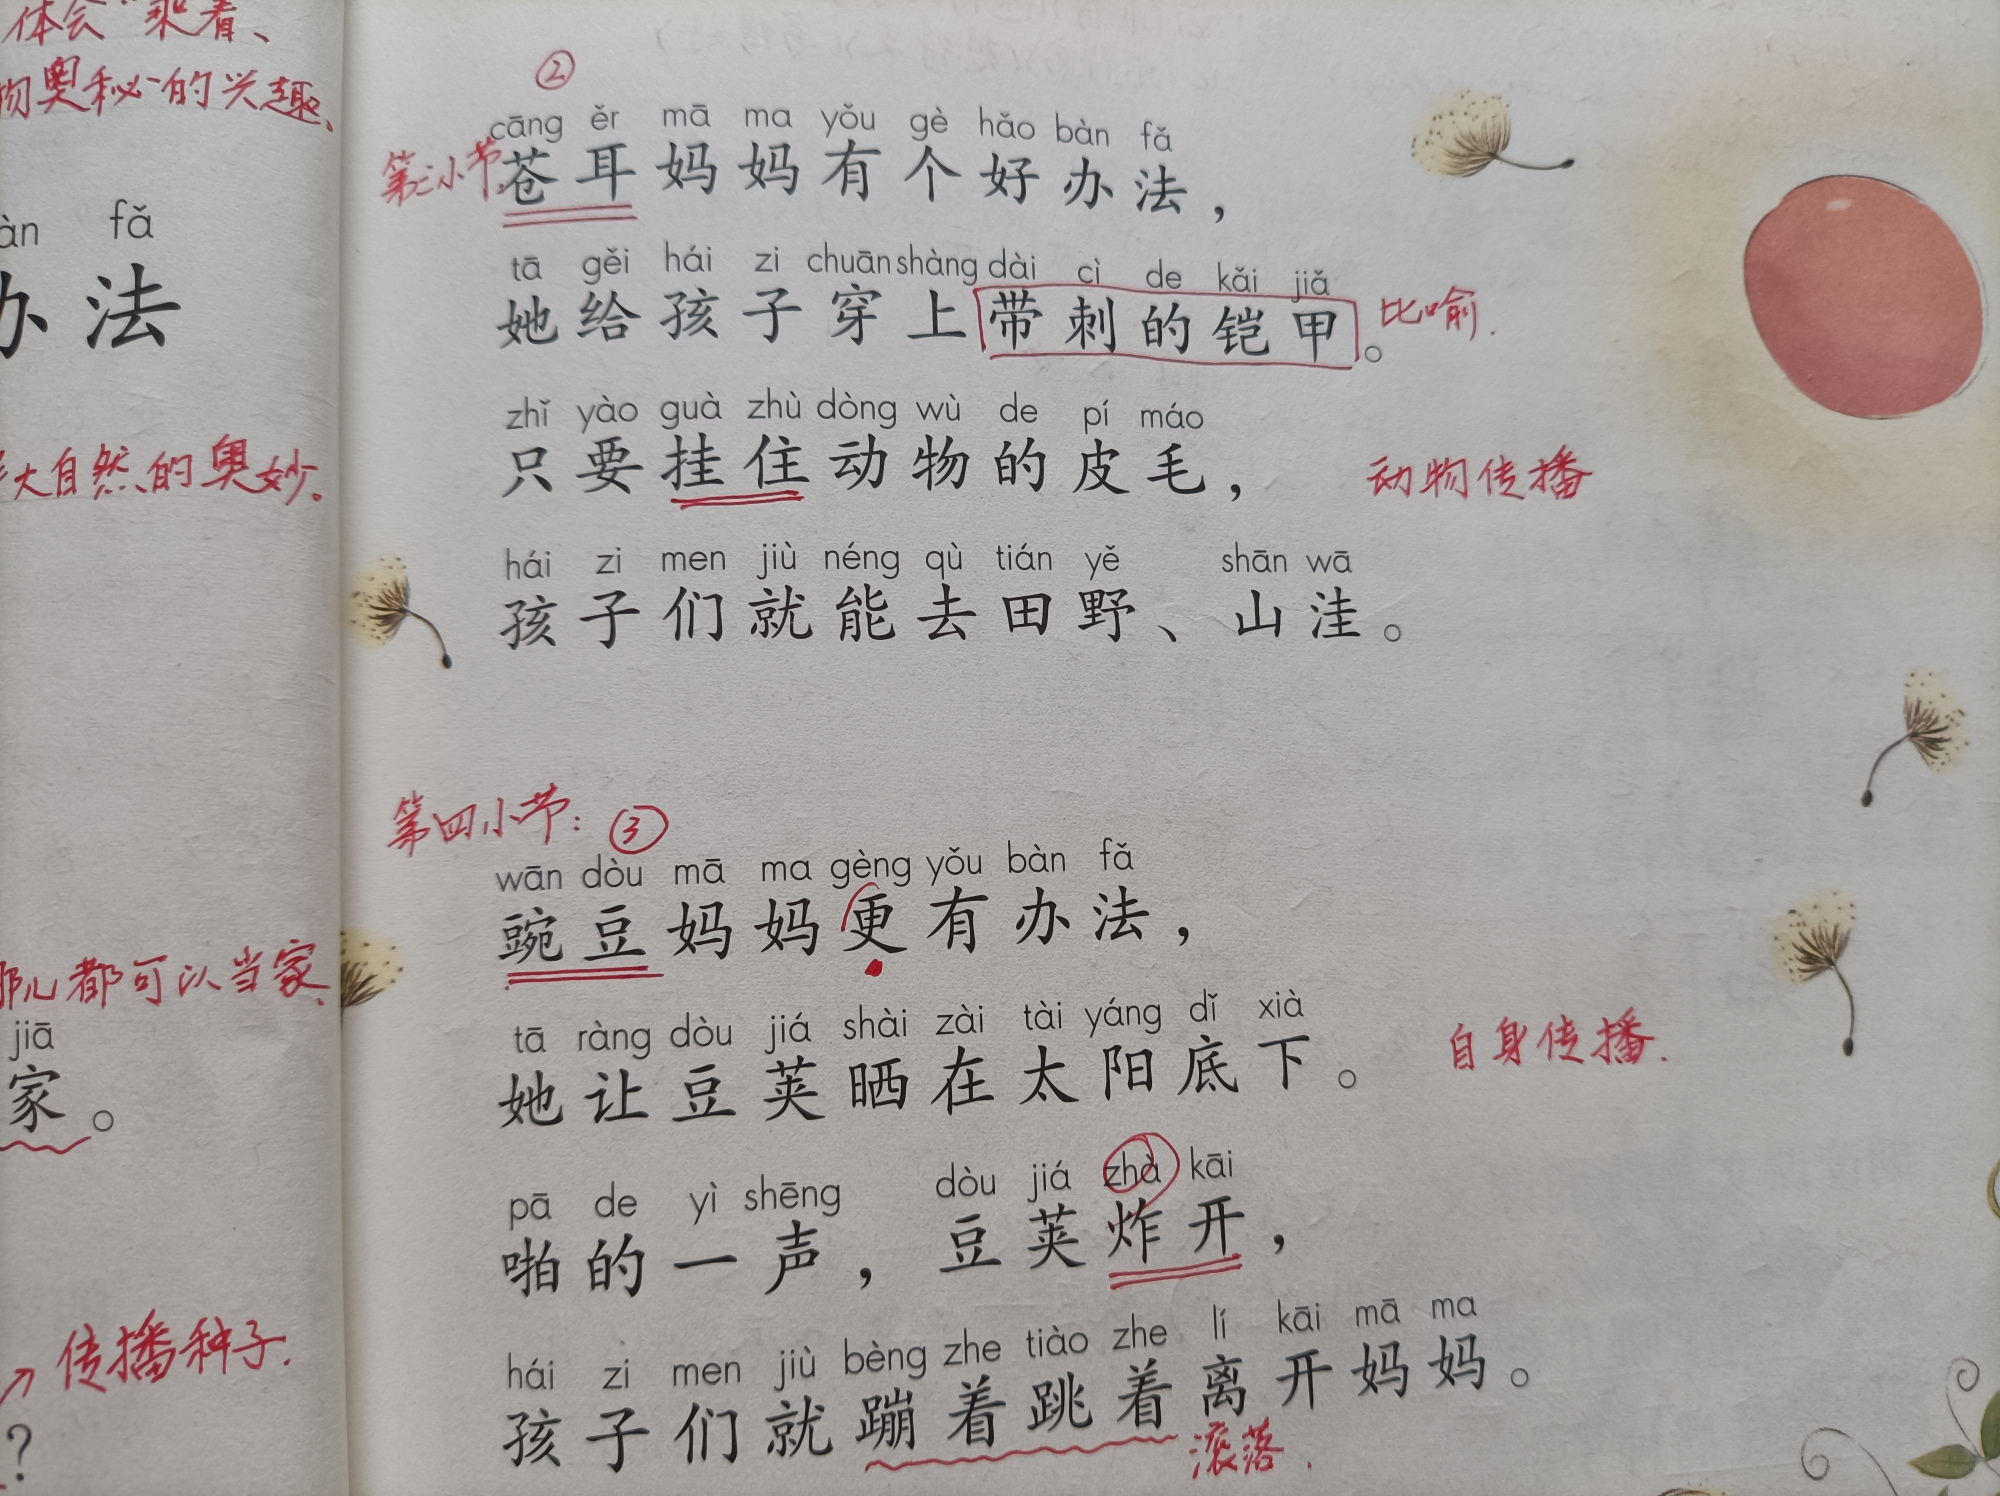 体会“乘着、
物奥秘”的兴趣、
àn fǎ
办法
大自然的奥妙.
那儿都可以当家、
jiā
家。
传播种子.
?
②
第三小节
cāng ěr mā ma yǒu gè hǎo bàn fǎ
苍耳妈妈有个好办法，
tā gěi hái zi chuān shàng dài cì de kǎi jiǎ
她给孩子穿上带刺的铠甲。
比喻.
zhǐ yào guà zhù dòng wù de pí máo
只要挂住动物的皮毛，
动物传播
hái zi men jiù néng qù tián yě shān wā
孩子们就能去田野、山洼。
第四小节：③
wān dòu mā ma gèng yǒu bàn fǎ
豌豆妈妈更有办法，
tā ràng dòu jiá shài zài tài yáng dǐ xià
她让豆荚晒在太阳底下。
自身传播.
pā de yì shēng dòu jiá zhà kāi
啪的一声，豆荚炸开，
hái zi men jiù bèng zhe tiào zhe lí kāi mā ma
孩子们就蹦着跳着离开妈妈。
滚落.